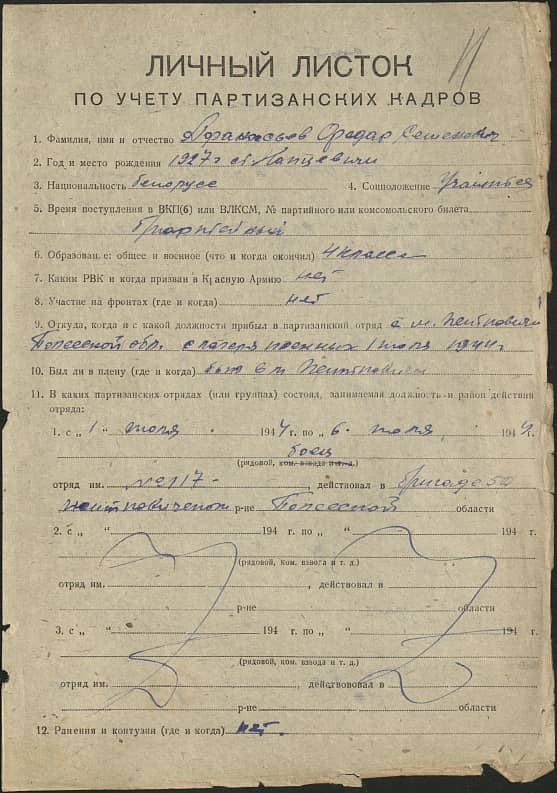 11
ЛИЧНЫЙ ЛИСТОК
ПО УЧЕТУ ПАРТИЗАНСКИХ КАДРОВ
1. Фамилия, имя и отчество Афанасьев Федар Семенович
2. Год и место рождения 1927 г ст Лапцевичи
3. Национальность белорусс 4. Соцположение Учащийся
5. Время поступления в ВКП(б) или ВЛКСМ, № партийного или комсомольского билета
6. Образование: общее и военное (что и когда окончил) 4 класса
7. Каким РВК и когда призван в Красную Армию нет
8. Участие на фронтах (где и когда) нет
9. Откуда, когда и с какой должности прибыл в партизанкий отряд с м.
Полесской обл. с лагеря 1 июля 1944 г.
10. Был ли в плену (где и когда) был в м
11. В каких партизанских отрядах (или группах) состоял, занимаемая должность и район действия
отряда:
1. с „ 1 " июля 1944 г. по „ 6 " июля 1944 г.
боец
(рядовой, ком. взвода и т. д.)
отряд им. №217 , действовал в бригаде 50
р-не Полесской области
2. с „ " 194 г. по „ " 194 г.
(рядовой, ком. взвога и т. д.)
отряд им. , действовал в
р-не области
3. с „ " 194 г. по „ " 194 г.
(рядовой, ком. взвода и т. д.)
отряд им. , действововал в
р-не области
12. Ранения и контузия (где и когда) нет.